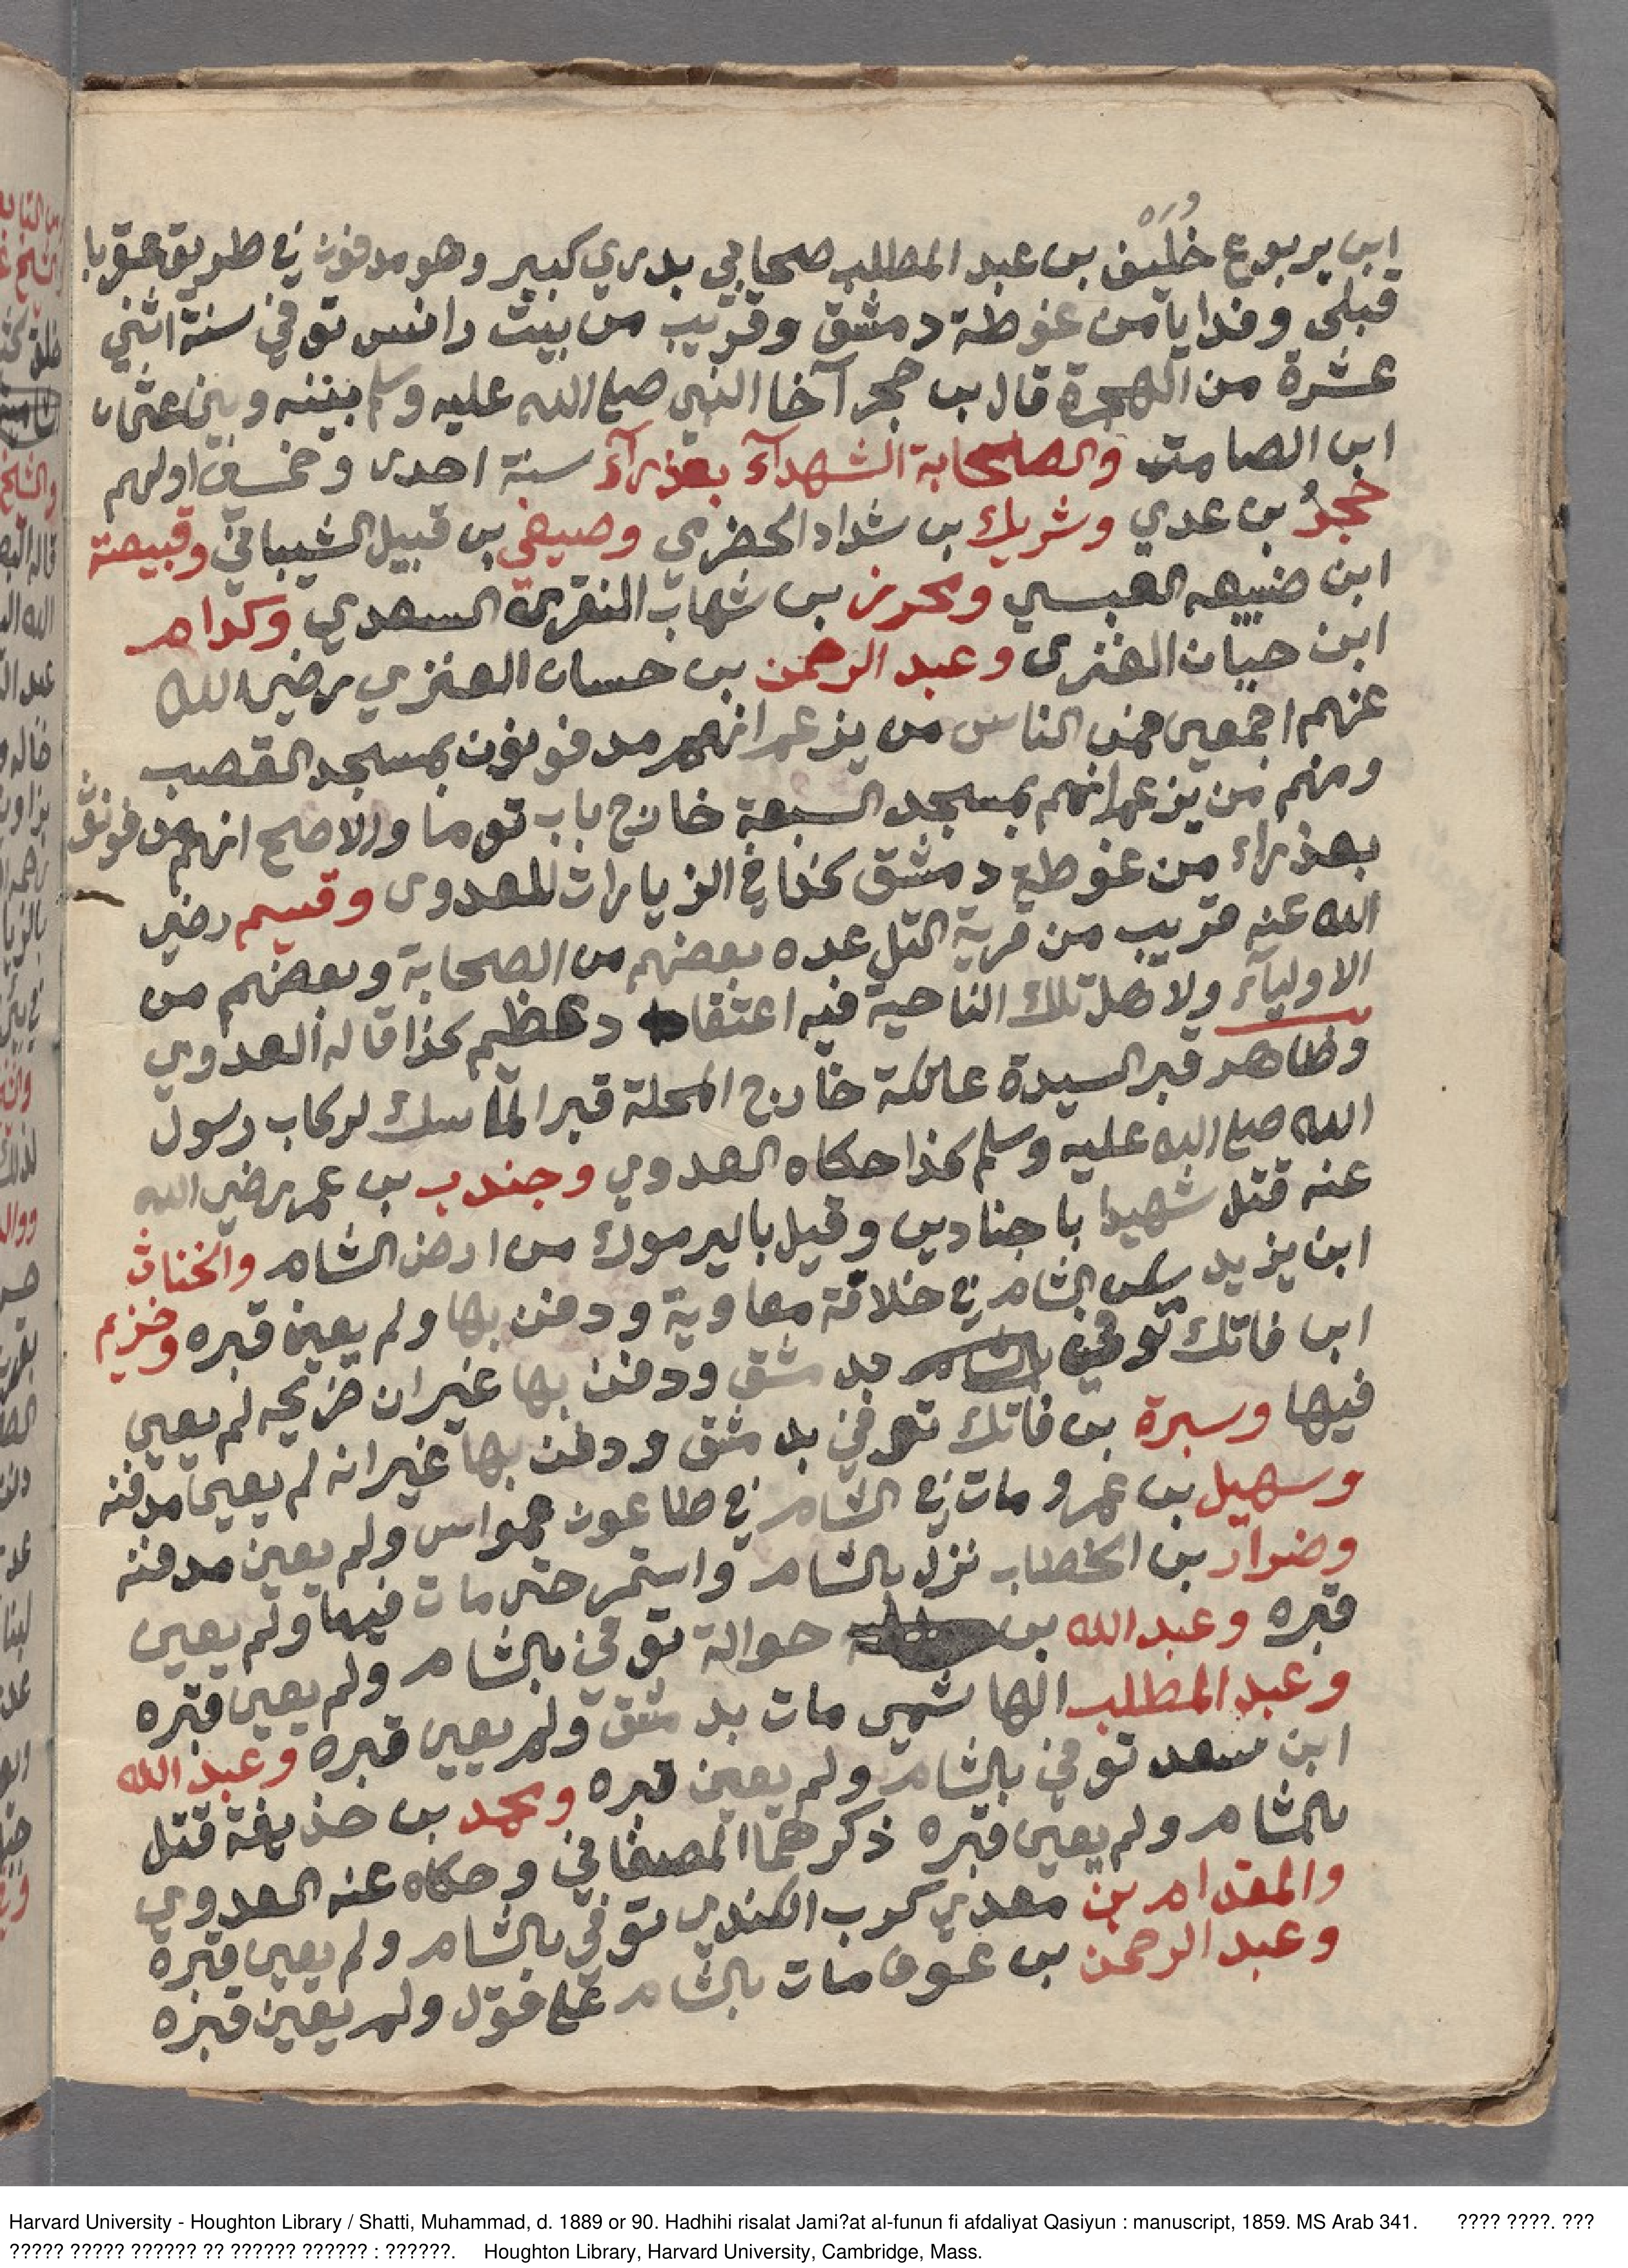 وره
ابن يربوع خليف بن عبد المطلب صحابي بدري كبير وهو مدفون في طريق عقربا
قبلي وفدايا من غوطة دمشق وقريب من بيت رانس توفي سنة اثني
عشرة من الهجرة قال بن حجر آخا النبي صلى الله عليه وسلم بينه وبين عثمان
ابن الصامت والصحابة الشهدآء بعذرآء سنة احدى وخمسين اولهم
حجرُ بن عدي وشريك بن شداد الحضري وصيفي بن قبيل الشيباني وقبيصة
ابن ضبيعه العبسي ومحرز بن شهاب المنقرى السعدي وكدام
ابن حيان العنزى وعبد الرحمن بن حسان العنزي رضي الله
عنهم اجمعين فمن الناس من يزعم انهم مدفونون بمسجد القصب
ومنهم من يزعم انهم بمسجد السبعة خارج باب توما والاصح انهم مدفونون
بعذراء من غوطة دمشق كذا في الزيارات للعدوى وقسيم رضي
الله عنه قريب من قرية التل عده بعضهم من الصحابة وبعضهم من
الاوليآء ولاهل تلك الناحية فيه اعتقاد عظيم كذا قاله العدوي
وظاهر قبر السيدة عاتكة خارج المحلة قبر الماسك لركاب رسول
الله صلى الله عليه وسلم كذا حكاه العدوي وجندب بن عمر رضي الله
عنه قتل شهيدا باجنادين وقيل باليرموك من ارض الشام والخناث
ابن يزيد سكن الشام في خلافة معاوية ودفن بها ولم يعين قبره وخزيم
ابن فاتك توفي بدمشق ودفن بها غير ان ضريحه لم يعين
فيها وسبرة بن فاتك توفي بدمشق ودفن بها غير انه لم يعين مدفنه
وسهيل بن عمرو مات في الشام في طاعون عمواس ولم يعين مدفنه
وضرار بن الخطاب نزل بالشام واستمر حتى مات فيها ولم يعين
قبره وعبد الله بن حوالة توفي بالشام ولم يعين قبره
وعبد المطلب الهاشمي مات بدمشق ولم يعين قبره وعبد الله
ابن سعد توفي بالشام ولم يعين قبره ومحمد بن حذيفة قتل
بالشام ولم يعين قبره ذكرهما الصفاني وحكاه عنه العدوي
والمقدام بن معدي كرب الكندي توفي بالشام ولم يعين قبره
وعبد الرحمن بن عوف مات بالشام على قول ولم يعين قبره
Harvard University - Houghton Library / Shatti, Muhammad, d. 1889 or 90. Hadhihi risalat Jami?at al-funun fi afdaliyat Qasiyun : manuscript, 1859. MS Arab 341. ???? ????. ???
????? ????? ?????? ?? ?????? ?????? : ??????. Houghton Library, Harvard University, Cambridge, Mass.